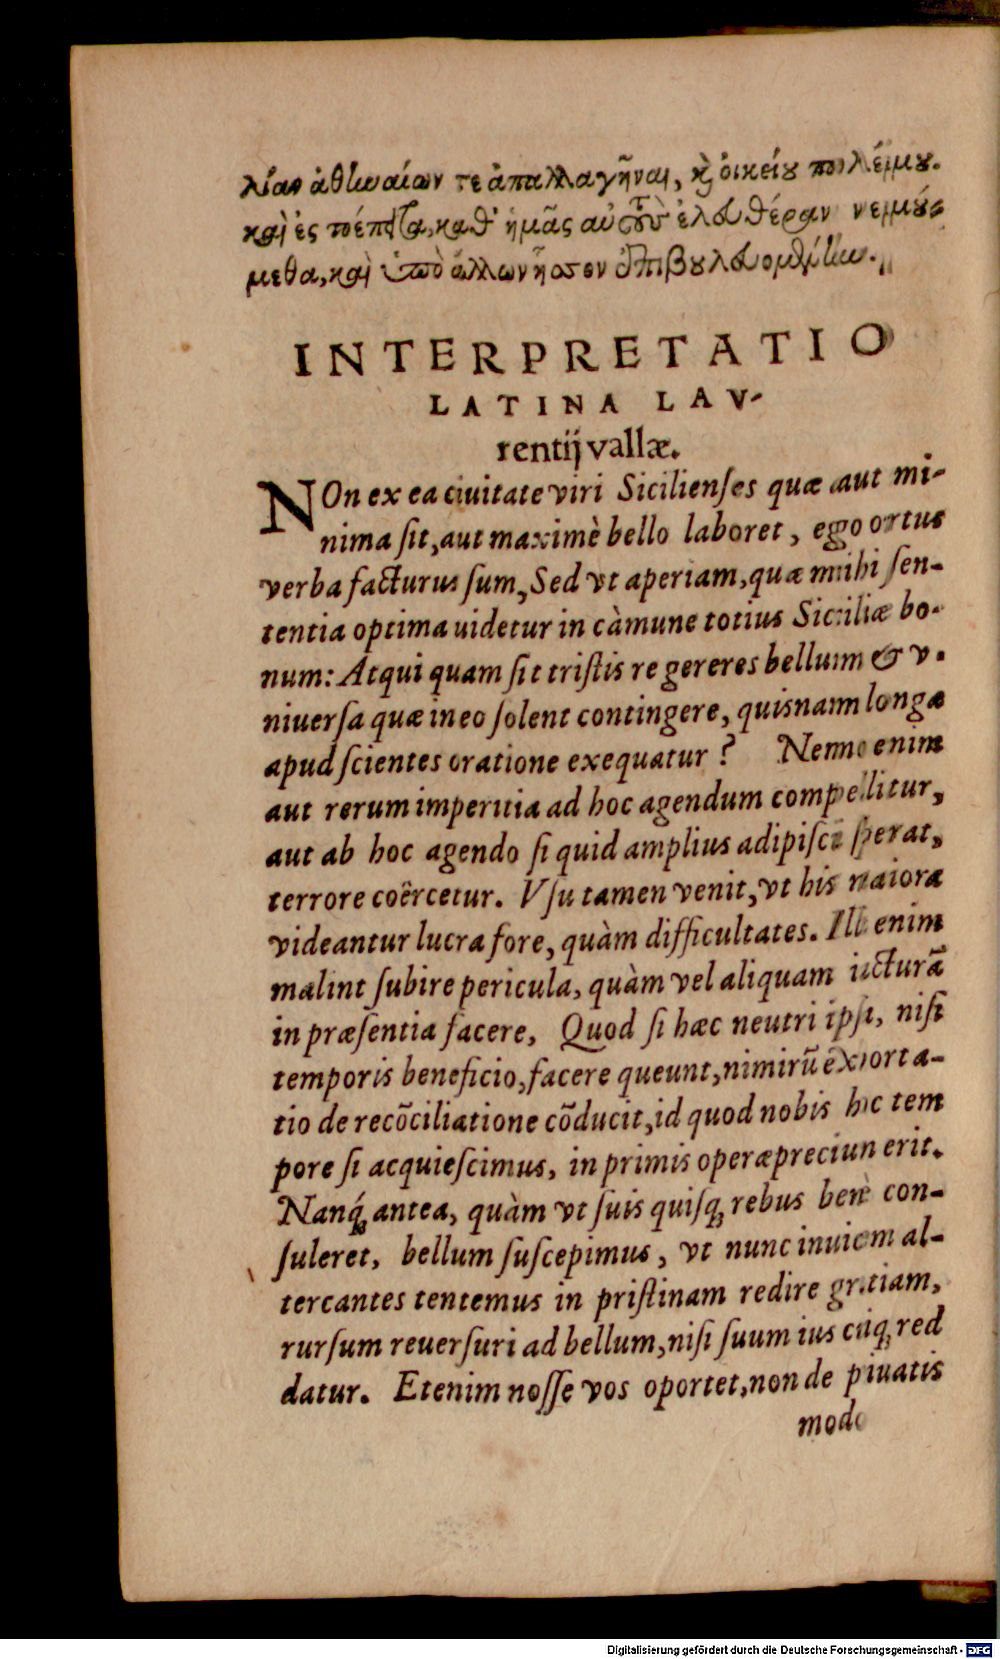 λίαν ἀθηναίων τε ἀπαλλαγῆναι, καὶ οἰκείου πολέμου.
καὶ ἐς τοέπειτα, καθ' ἡμᾶς αὐτοὺς ἐλευθέραν νεμού-
μεθα, καὶ ὑπὸ ἄλλων ἧσσον ἐπιβουλευομένην.
INTERPRETATIO
LATINA LAV-
rentij vallæ.
NOn ex ea ciuitate viri Sicilienſes quæ aut mi-
nima ſit, aut maximè bello laboret, ego ortus
verba facturus ſum, Sed vt aperiam, quæ mihi ſen-
tentia optima uidetur in càmune totius Siciliæ bo-
num: Atqui quam ſit triſtis re gereres bellum & v-
niuerſa quæ in eo ſolent contingere, quisnam longa
apud ſcientes oratione exequatur? Nemo enim
aut rerum imperitia ad hoc agendum compellitur,
aut ab hoc agendo ſi quid amplius adipiſci ſperat,
terrore coêrcetur. Vſu tamen venit, vt his maiora
videantur lucra fore, quàm difficultates. Illi enim
malint ſubire pericula, quàm vel aliquam iacturā
in præſentia facere, Quod ſi hæc neutri ipſi, niſi
temporis beneficio, facere queunt, nimirū exhorta-
tio de recōciliatione cōducit, id quod nobis hoc tem
pore ſi acquieſcimus, in primis operæprecium erit.
Nanq́ꝫ antea, quàm vt ſuis quiſqꝫ rebus benè con-
ſuleret, bellum ſuſcepimus, vt nunc inuicem al-
tercantes tentemus in priſtinam redire gratiam,
rurſum reuerſuri ad bellum, niſi ſuum ius cuiqꝫ red
datur. Etenim noſſe vos oportet, non de priuatis
modo
Digitalisierung gefördert durch die Deutsche Forschungsgemeinschaft - DFG